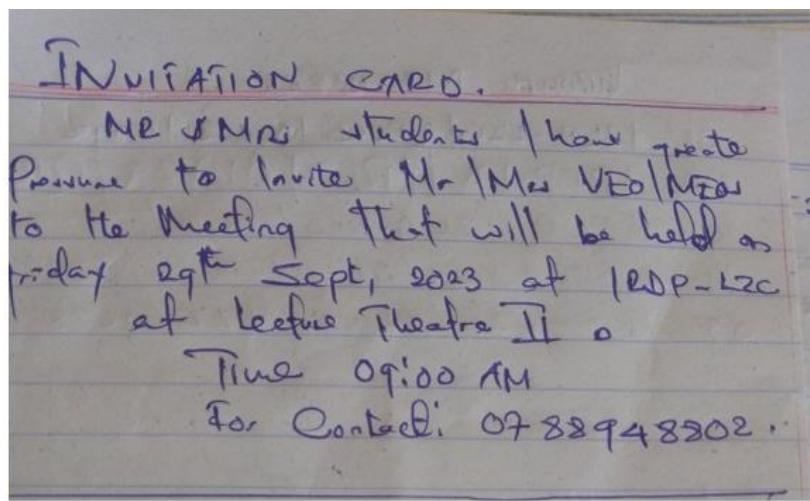 INVITATION CARD.
MR & MRS students / have greate
Pressure to Invite Mr/Mrs VEO/MEOs
to the Meeting that will be held on
friday 29th Sept, 2023 at IRDP-LZC
at Lecture Theatre II.
Time 09:00 AM
For Contact: 0788948802.